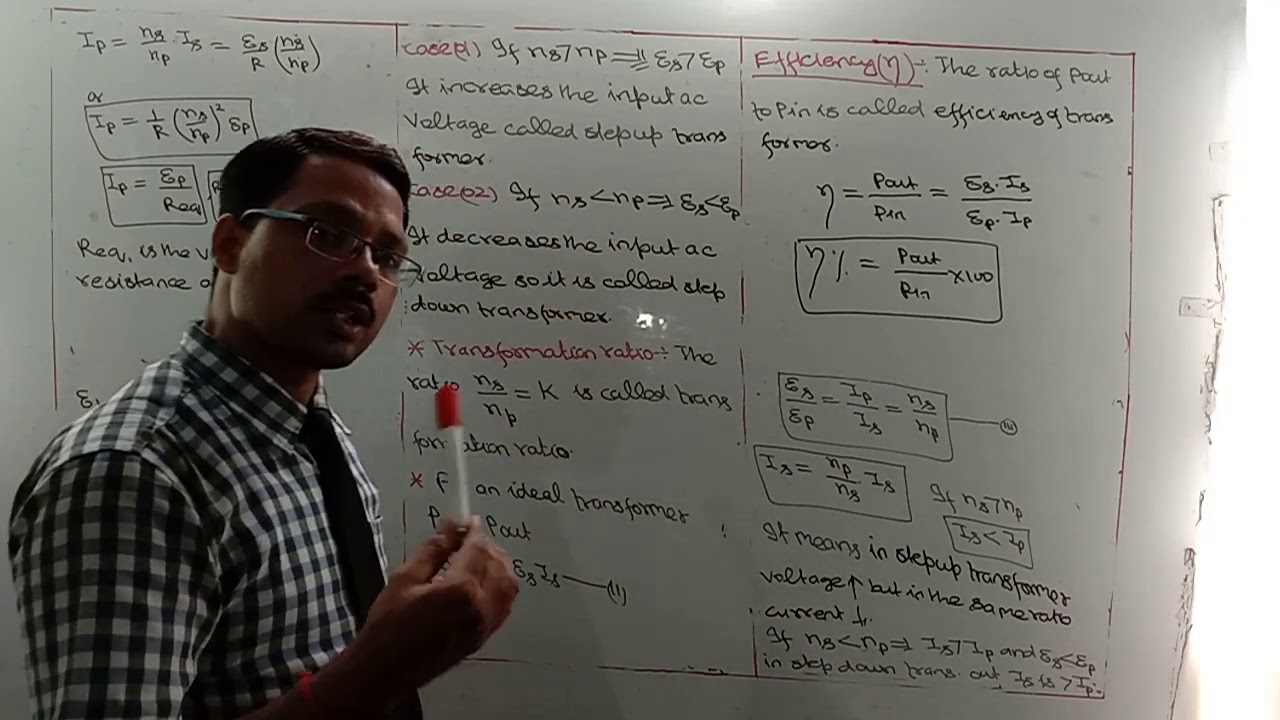 Ip = ns/np · Is = Es/R (ns/np)
or
Ip = 1/R (ns/np)² Ep
Ip = Ep/Req
Req, is the
resistance
case(1) If ns > np ⇒ Es > Ep
It increases the input ac
voltage called step up trans
former.
case(2) If ns < np ⇒ Es < Ep
It decreases the input ac
voltage so it is called step
down transformer.
* Transformation ratio:- The
ratio ns/np = K is called trans
formation ratio.
* an ideal transformer
Pout
EsIs — (11)
Efficiency(η):- The ratio of Pout
to Pin is called efficiency of trans
former.
η = Pout/Pin = Es·Is/Ep·Ip
η% = Pout/Pin ×100
Es/Ep = Ip/Is = ns/np
Is = np/ns Is
If ns > np
Is < Ip
It means in step up transformer
voltage↑ but in the same ratio
current ↓.
If ns < np ⇒ Is > Ip and Es < Ep
in step down trans. out Is is > Ip.